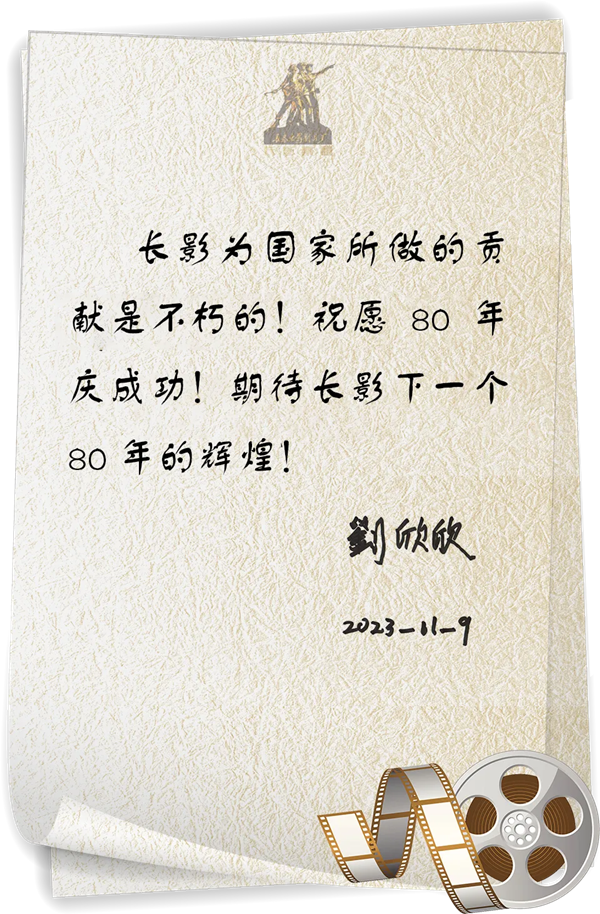 长影为国家所做的贡
献是不朽的！祝愿 80 年
庆成功！期待长影下一个
80 年的辉煌！
劉欣欣
2023-11-9